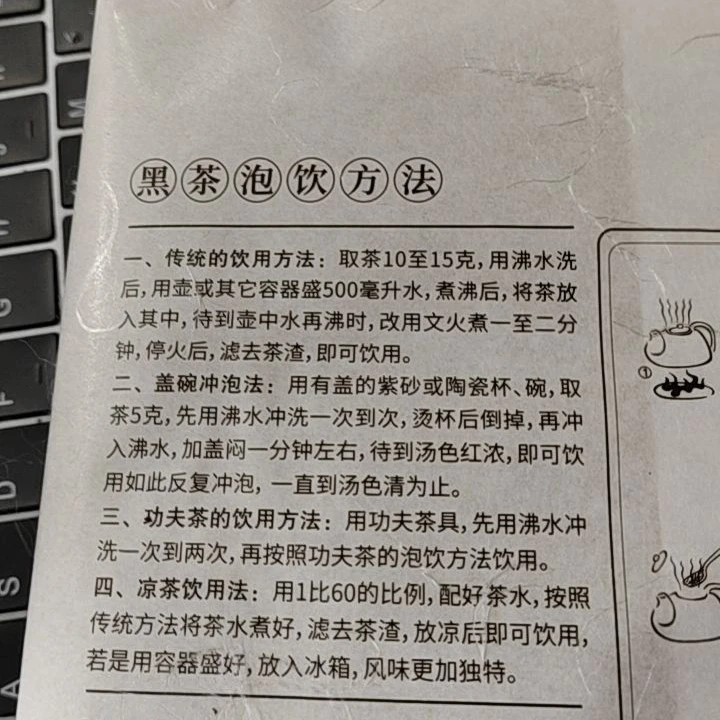 黑茶泡饮方法
一、传统的饮用方法：取茶10至15克，用沸水洗
后，用壶或其它容器盛500毫升水，煮沸后，将茶放
入其中，待到壶中水再沸时，改用文火煮一至二分
钟，停火后，滤去茶渣，即可饮用。
二、盖碗冲泡法：用有盖的紫砂或陶瓷杯、碗，取
茶5克，先用沸水冲洗一次到次，烫杯后倒掉，再冲
入沸水，加盖闷一分钟左右，待到汤色红浓，即可饮
用如此反复冲泡，一直到汤色清为止。
三、功夫茶的饮用方法：用功夫茶具，先用沸水冲
洗一次到两次，再按照功夫茶的泡饮方法饮用。
四、凉茶饮用法：用1比60的比例，配好茶水，按照
传统方法将茶水煮好，滤去茶渣，放凉后即可饮用，
若是用容器盛好，放入冰箱，风味更加独特。
①
M
N
G
F
D
S
A